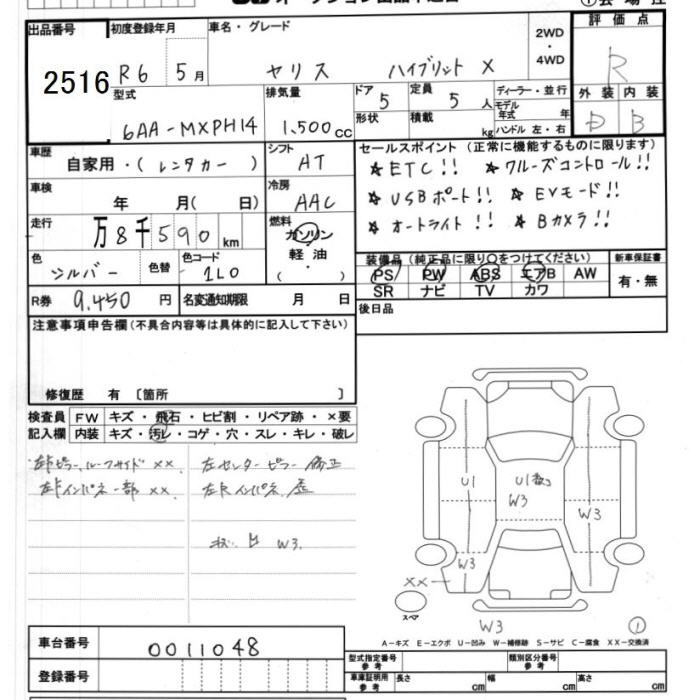 出品番号 初度登録年月 車名・グレード 評価点
2516 R6 5月 ヤリス ハイブリッド X 2WD・4WD R
型式 排気量 ドア 5 定員 5 人 ディーラー・並行 外装 内装
6AA-MXPH14 1.500cc 形状 積載 kg モデル年式 年 ハンドル 左・右 D B
車歴 自家用・(レンタカー) シフト AT
セールスポイント (正常に機能するものに限ります)
☆ETC!! ☆クルーズコントロール!!
車検 年 月( 日) 冷房 AAC
☆USBポート!! ☆EVモード!!
走行 万8千590km 燃料 ガソリン・軽油・( )
☆オートライト!! ☆Bカメラ!!
色 シルバー 色替 色コード 1L0
装備品 (純正品に限り○をつけてください) 新車保証書
PS PW ABS エアB AW 有・無
SR ナビ TV カワ
R券 9.450円 名変通知期限 月 日
後日品
注意事項申告欄(不具合内容等は具体的に記入して下さい)
修復歴 有 〔箇所 〕
検査員 FW キズ・飛石・ヒビ割・リペア跡・×要
記入欄 内装 キズ・汚レ・コゲ・穴・スレ・キレ・破レ
ルーフサイド ×× 左センターピラー 修正
インパネ一部 ×× インパネ 歪
W3
U1
U1
W3
W3
W3
××
スペア
W3
①
A-キズ E-エクボ U-凹み W-補修跡 S-サビ C-腐食 XX-交換済
車台番号 0011048
型式指定番号 参考 類別区分番号 参考
登録番号
車庫証明用 参考 長さ cm 幅 cm 高さ cm